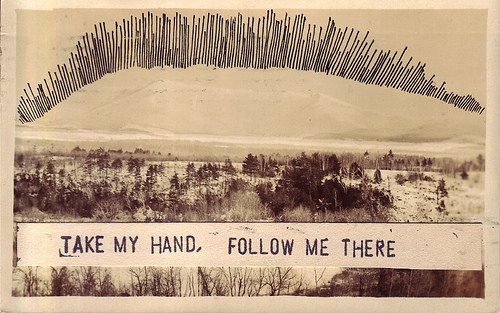 TAKE MY HAND, FOLLOW ME THERE